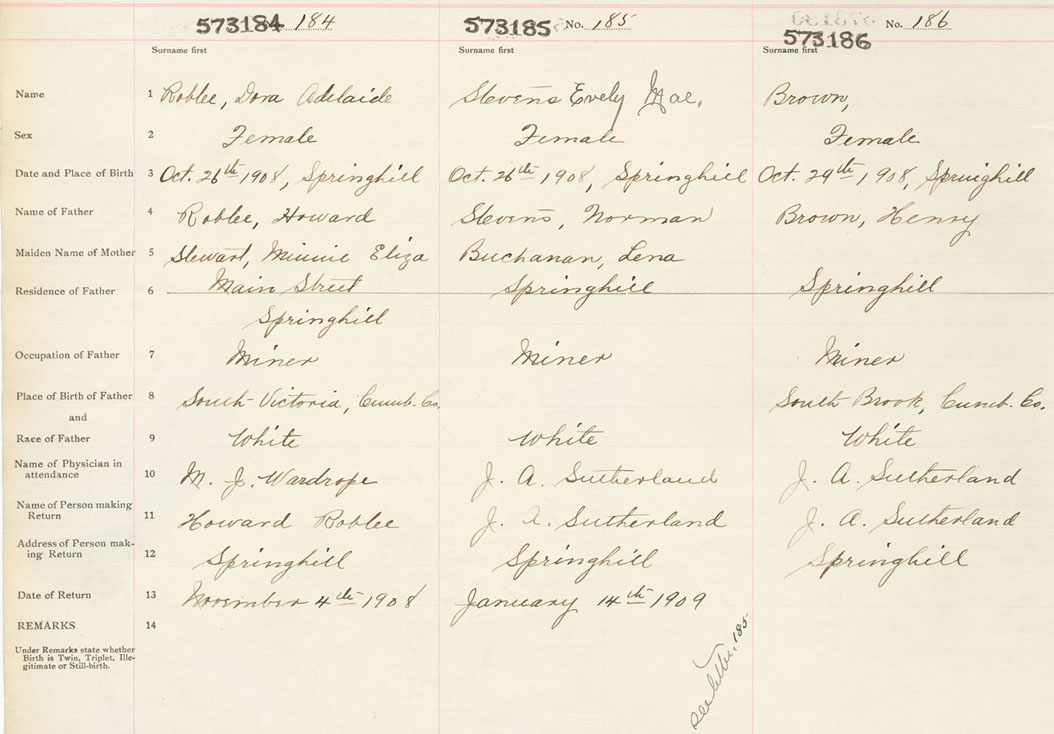 573184 184 573185 No. 185 No. 186
573186
Surname first Surname first Surname first
Name 1 Roblee, Dora Adelaide Stevens Evely Mae, Brown,
Sex 2 Female Female Female
Date and Place of Birth 3 Oct. 26th 1908, Springhill Oct. 26th 1908, Springhill Oct. 29th 1908, Springhill
Name of Father 4 Roblee, Howard Stevens, Norman Brown, Henry
Maiden Name of Mother 5 Stewart, Minnie Eliza Buchanan, Lena
Residence of Father 6 Main Street Springhill Springhill
Springhill
Occupation of Father 7 Miner Miner Miner
Place of Birth of Father 8 South Victoria, Cumb. Co. South Brook, Cumb. Co.
and
Race of Father 9 White White White
Name of Physician in
attendance 10 M. J. Wardrope J. A. Sutherland J. A. Sutherland
Name of Person making
Return 11 Howard Roblee J. A. Sutherland J. A. Sutherland
Address of Person mak-
ing Return 12 Springhill Springhill Springhill
Date of Return 13 November 4th 1908 January 14th 1909
REMARKS 14
Under Remarks state whether
Birth is Twin, Triplet, Ille-
gitimate or Still-birth.
see letter, 185